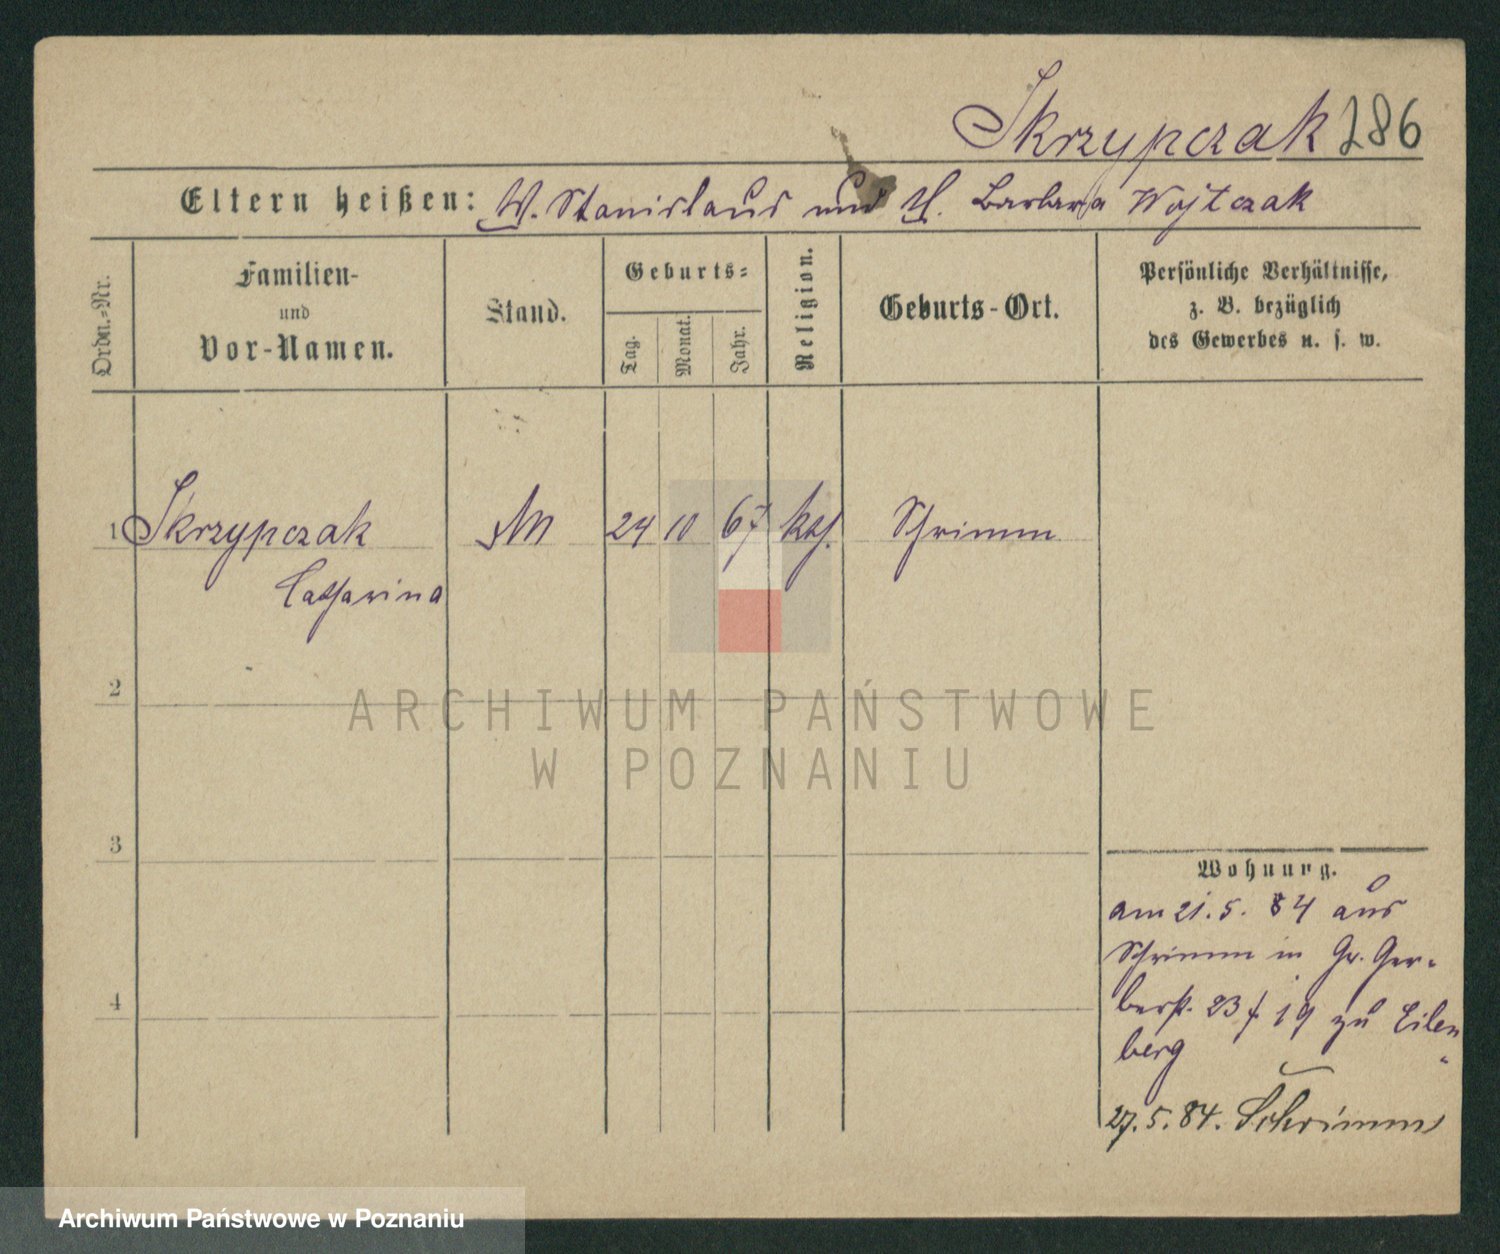 Skrzypczak 286
Eltern heißen: W. Stanislaus und H. Barbara Wojtczak
Ordn.-Nr.
Familien-
und
Vor-Namen.
Stand.
Geburts-
Tag.
Monat.
Jahr.
Religion.
Geburts-Ort.
Persönliche Verhältnisse,
z. B. bezüglich
des Gewerbes u. s. w.
1 Skrzypczak 24 10 67 kth. Schrimm
Catharina
2
ARCHIWUM PAŃSTWOWE
W POZNANIU
3
Wohnung.
am 21. 5. 84 aus
Schrimm in Gr. Ger-
berst. 23 / 19 zu Eilen-
berg
4
27. 5. 84. Schrimm
Archiwum Państwowe w Poznaniu